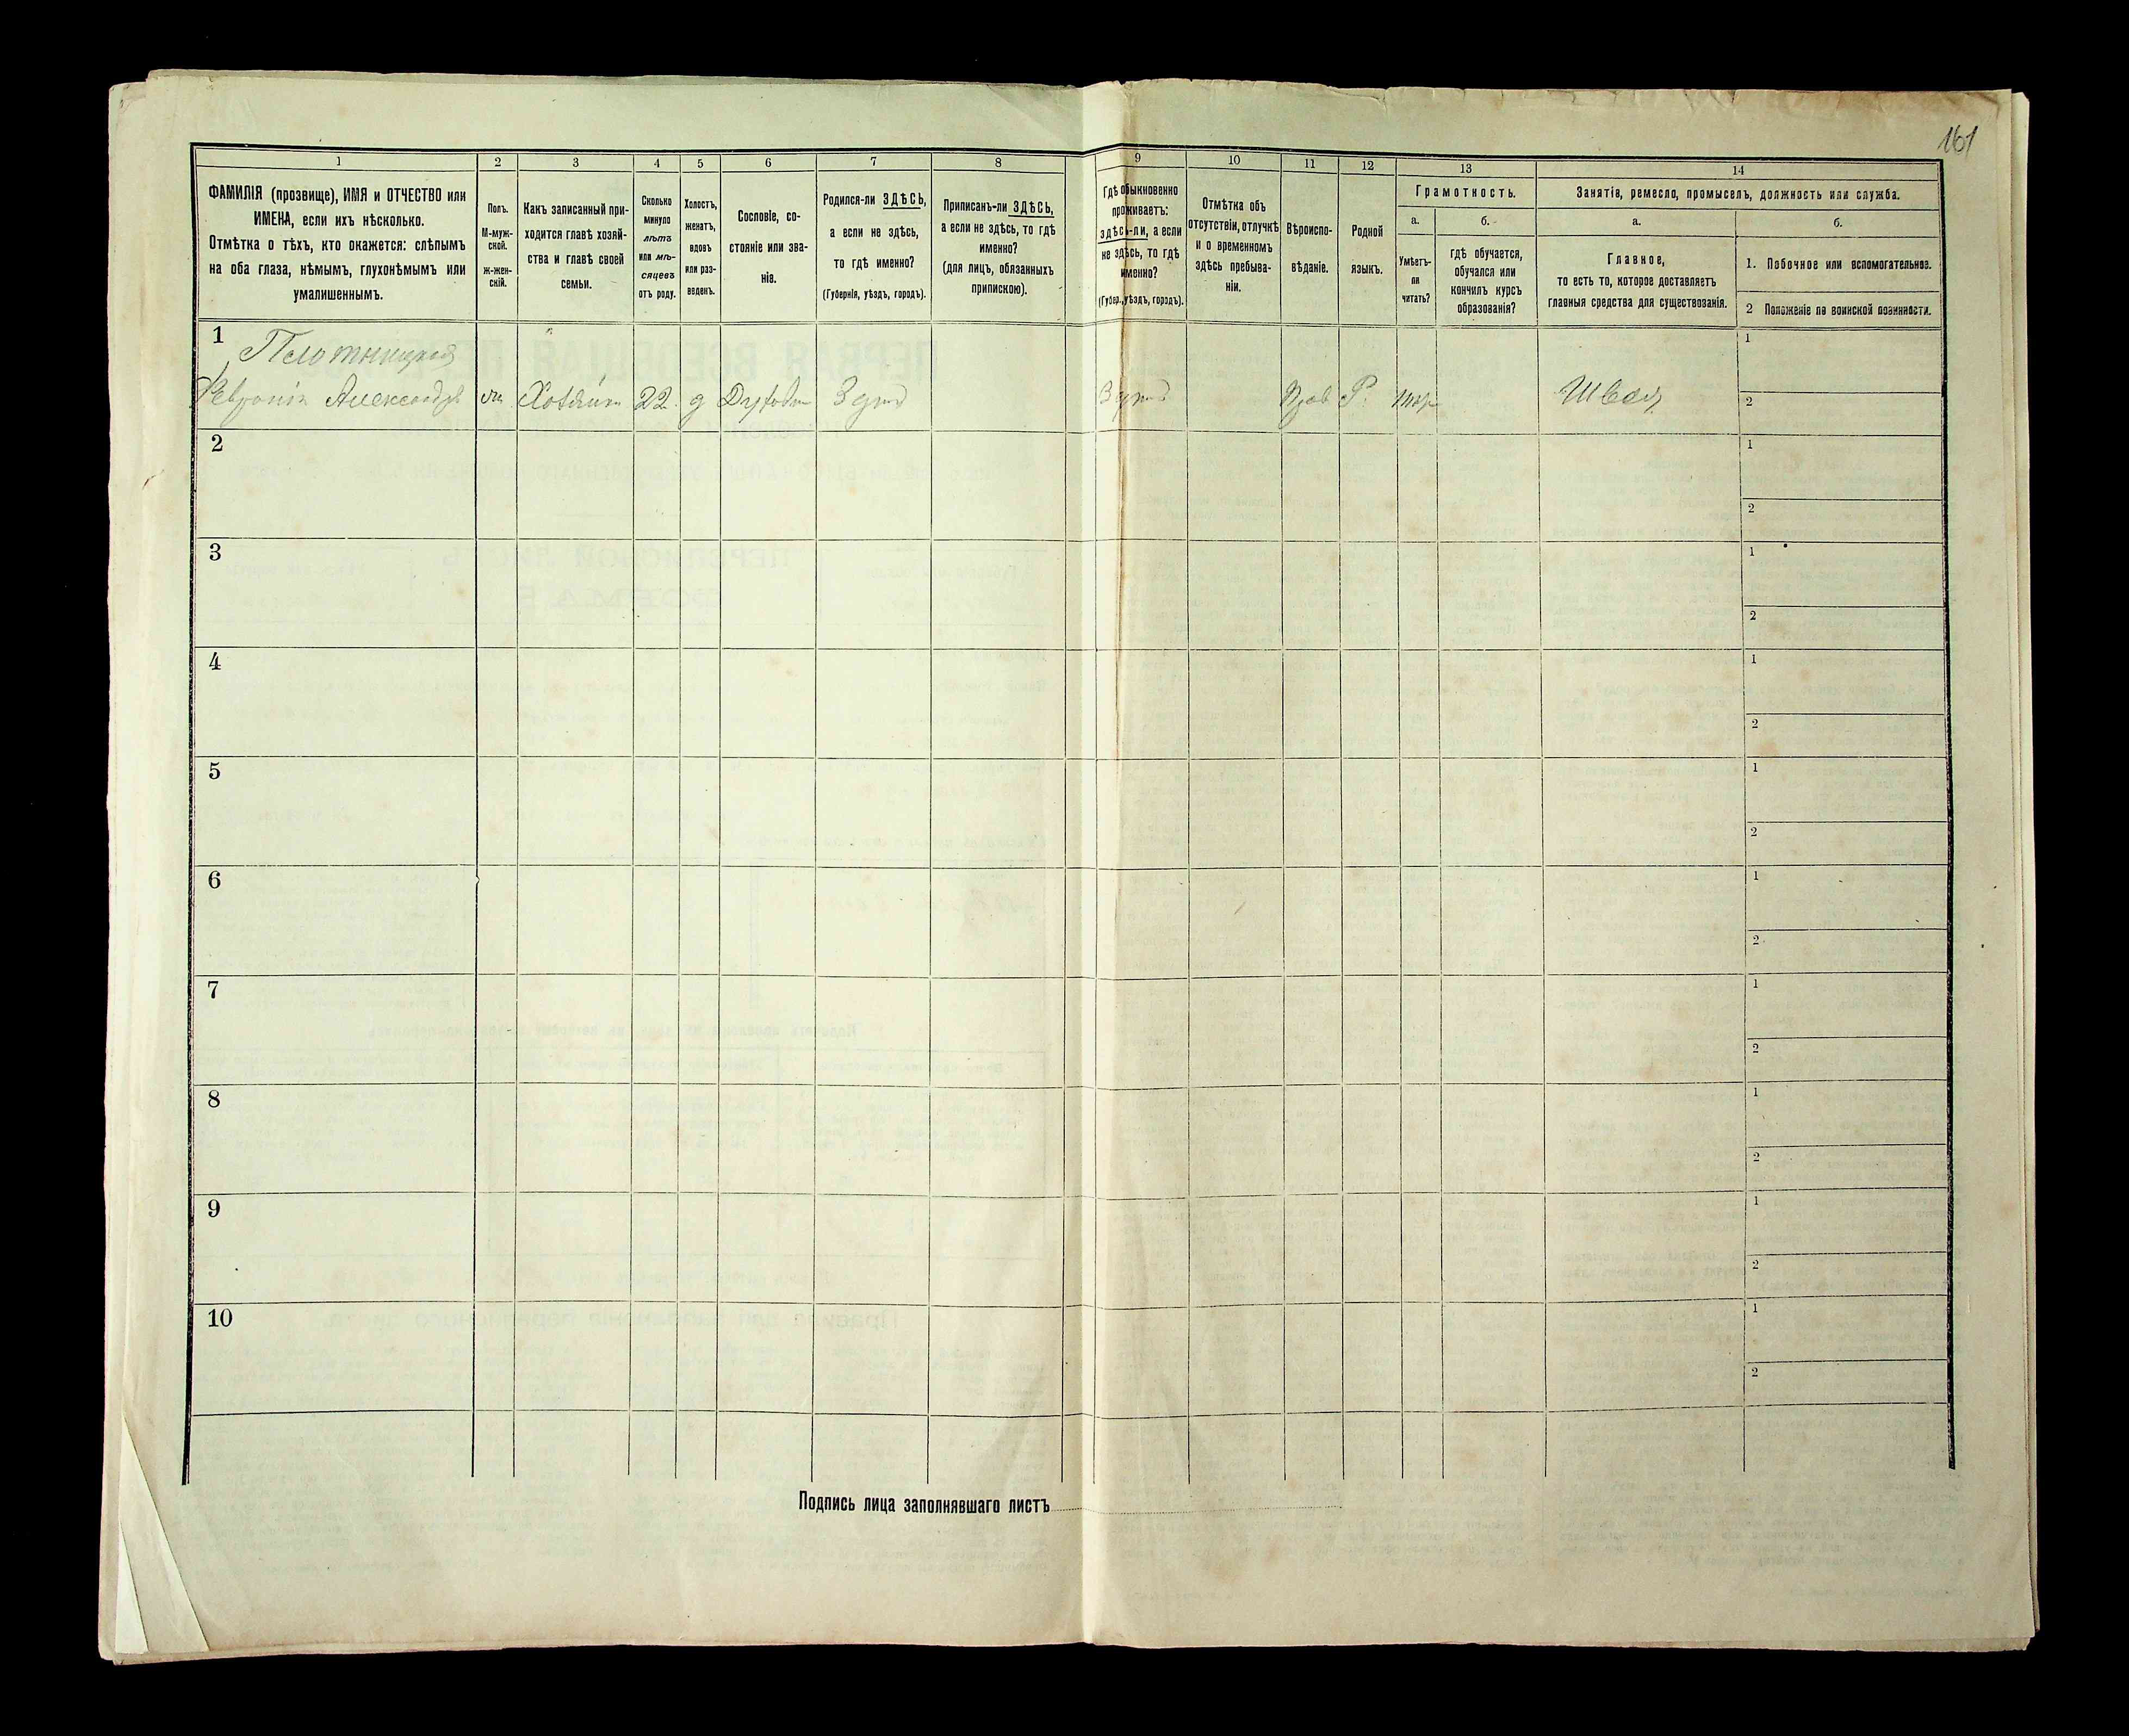 161
1
2
3
4
5
6
7
8
9
10
11
12
13
14
ФАМИЛІЯ (прозвище), ИМЯ и ОТЧЕСТВО или
ИМЕНА, если ихъ нѣсколько.
Отмѣтка о тѣхъ, кто окажется: слѣпымъ
на оба глаза, нѣмымъ, глухонѣмымъ или
умалишеннымъ.
Полъ.
М-муж-
ской.
ж-жен-
скій.
Какъ записанный при-
ходится главѣ хозяй-
ства и главѣ своей
семьи.
Сколько
минуло
лѣтъ
или мѣ-
сяцевъ
отъ роду.
Холостъ,
женатъ,
вдовъ
или раз-
веденъ.
Сословіе, со-
стояніе или зва-
ніе.
Родился-ли ЗДѢСЬ,
а если не здѣсь,
то гдѣ именно?
(Губернія, уѣздъ, городъ).
Приписанъ-ли ЗДѢСЬ,
а если не здѣсь, то гдѣ
именно?
(для лицъ, обязанныхъ
припискою).
Гдѣ обыкновенно
проживаетъ:
здѣсь-ли, а если
не здѣсь, то гдѣ
именно?
(Губер., уѣздъ, городъ).
Отмѣтка объ
отсутствіи, отлучкѣ
и о временномъ
здѣсь пребыва-
ніи.
Вѣроиспо-
вѣданіе.
Родной
языкъ.
Грамотность.
а.
Умѣетъ-
ли
читать?
б.
гдѣ обучается,
обучался или
кончилъ курсъ
образованія?
Занятія, ремесло, промыселъ, должность или служба.
а.
Главное,
то есть то, которое доставляетъ
главныя средства для существованія.
б.
1. Побочное или вспомогательное.
2 Положеніе по воинской повинности.
1
Плотницкая
Александр
22
д
Прав
Р.
Швея
1
2
2
1
2
3
1
2
4
1
2
5
1
2
6
1
2
7
1
2
8
1
2
9
1
2
10
1
2
Подпись лица заполнявшаго листъ